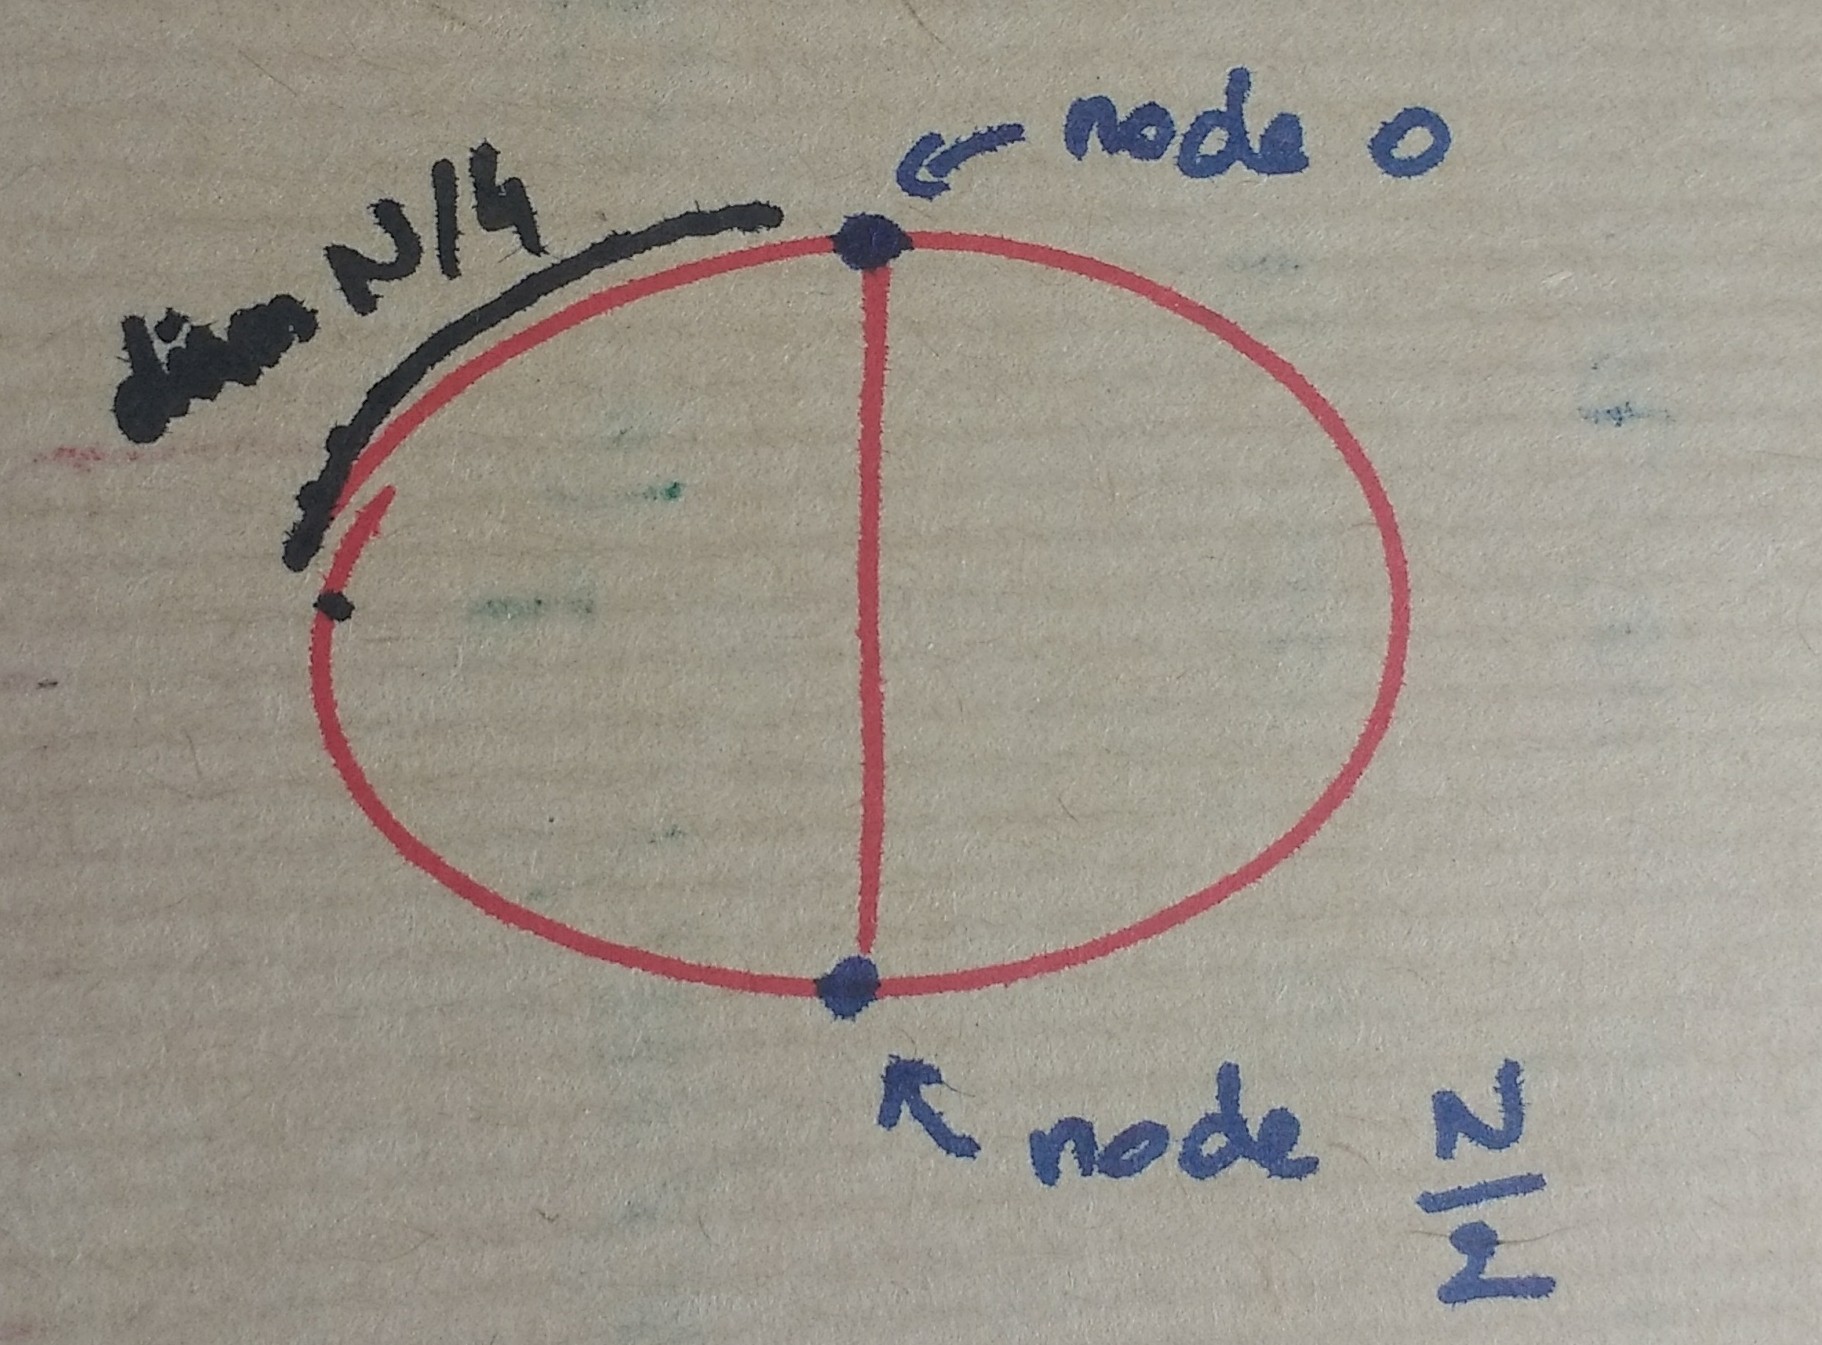 node 0
diam N/4
node N/2